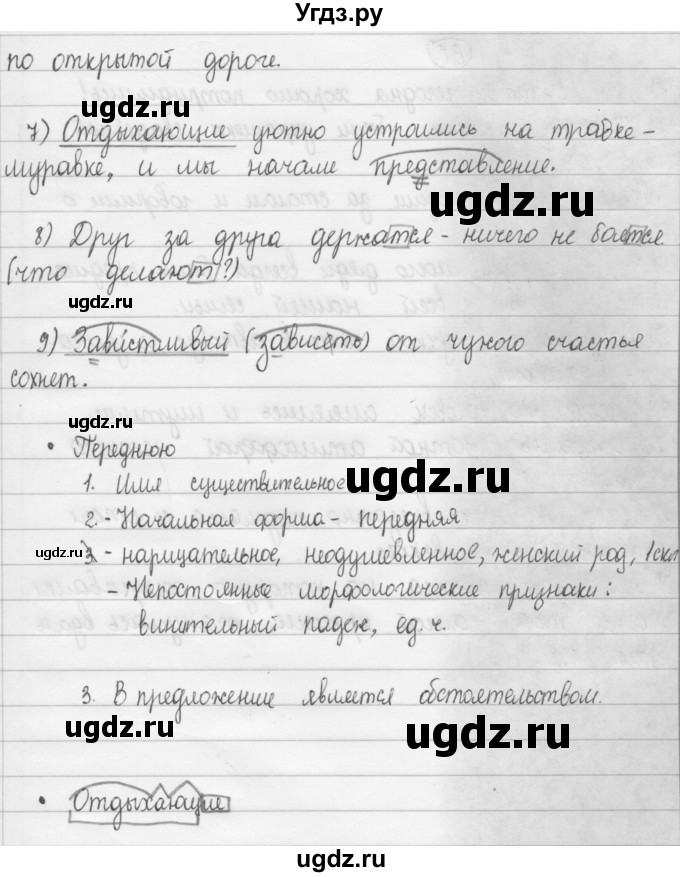 Угдз.ру
по открытой дороге.
ugdz.ru
7) Отдыхающие уютно устроились на травке-
муравке, и мы начали представление.
ugdz.ru
ugdz.ru
8) Друг за друга держатся - ничего не боятся
(что делают?)
ugdz.ru
ugdz.ru
9) Завистливый (зависеть) от чужого счастья
сохнет.
• Переднюю
ugdz.ru
1. Имя существительное
ugdz.ru
2 - Начальная форма - передняя
ugdz.ru
- нарицательное, неодушевленное, женский род, 1скл
- Непостоянные морфологические признаки:
винительный падеж, ед. ч.
3. В предложение является обстоятельством.
ugdz.ru
ugdz.ru
• Отдыхающие
ugdz.ru
ugdz.ru